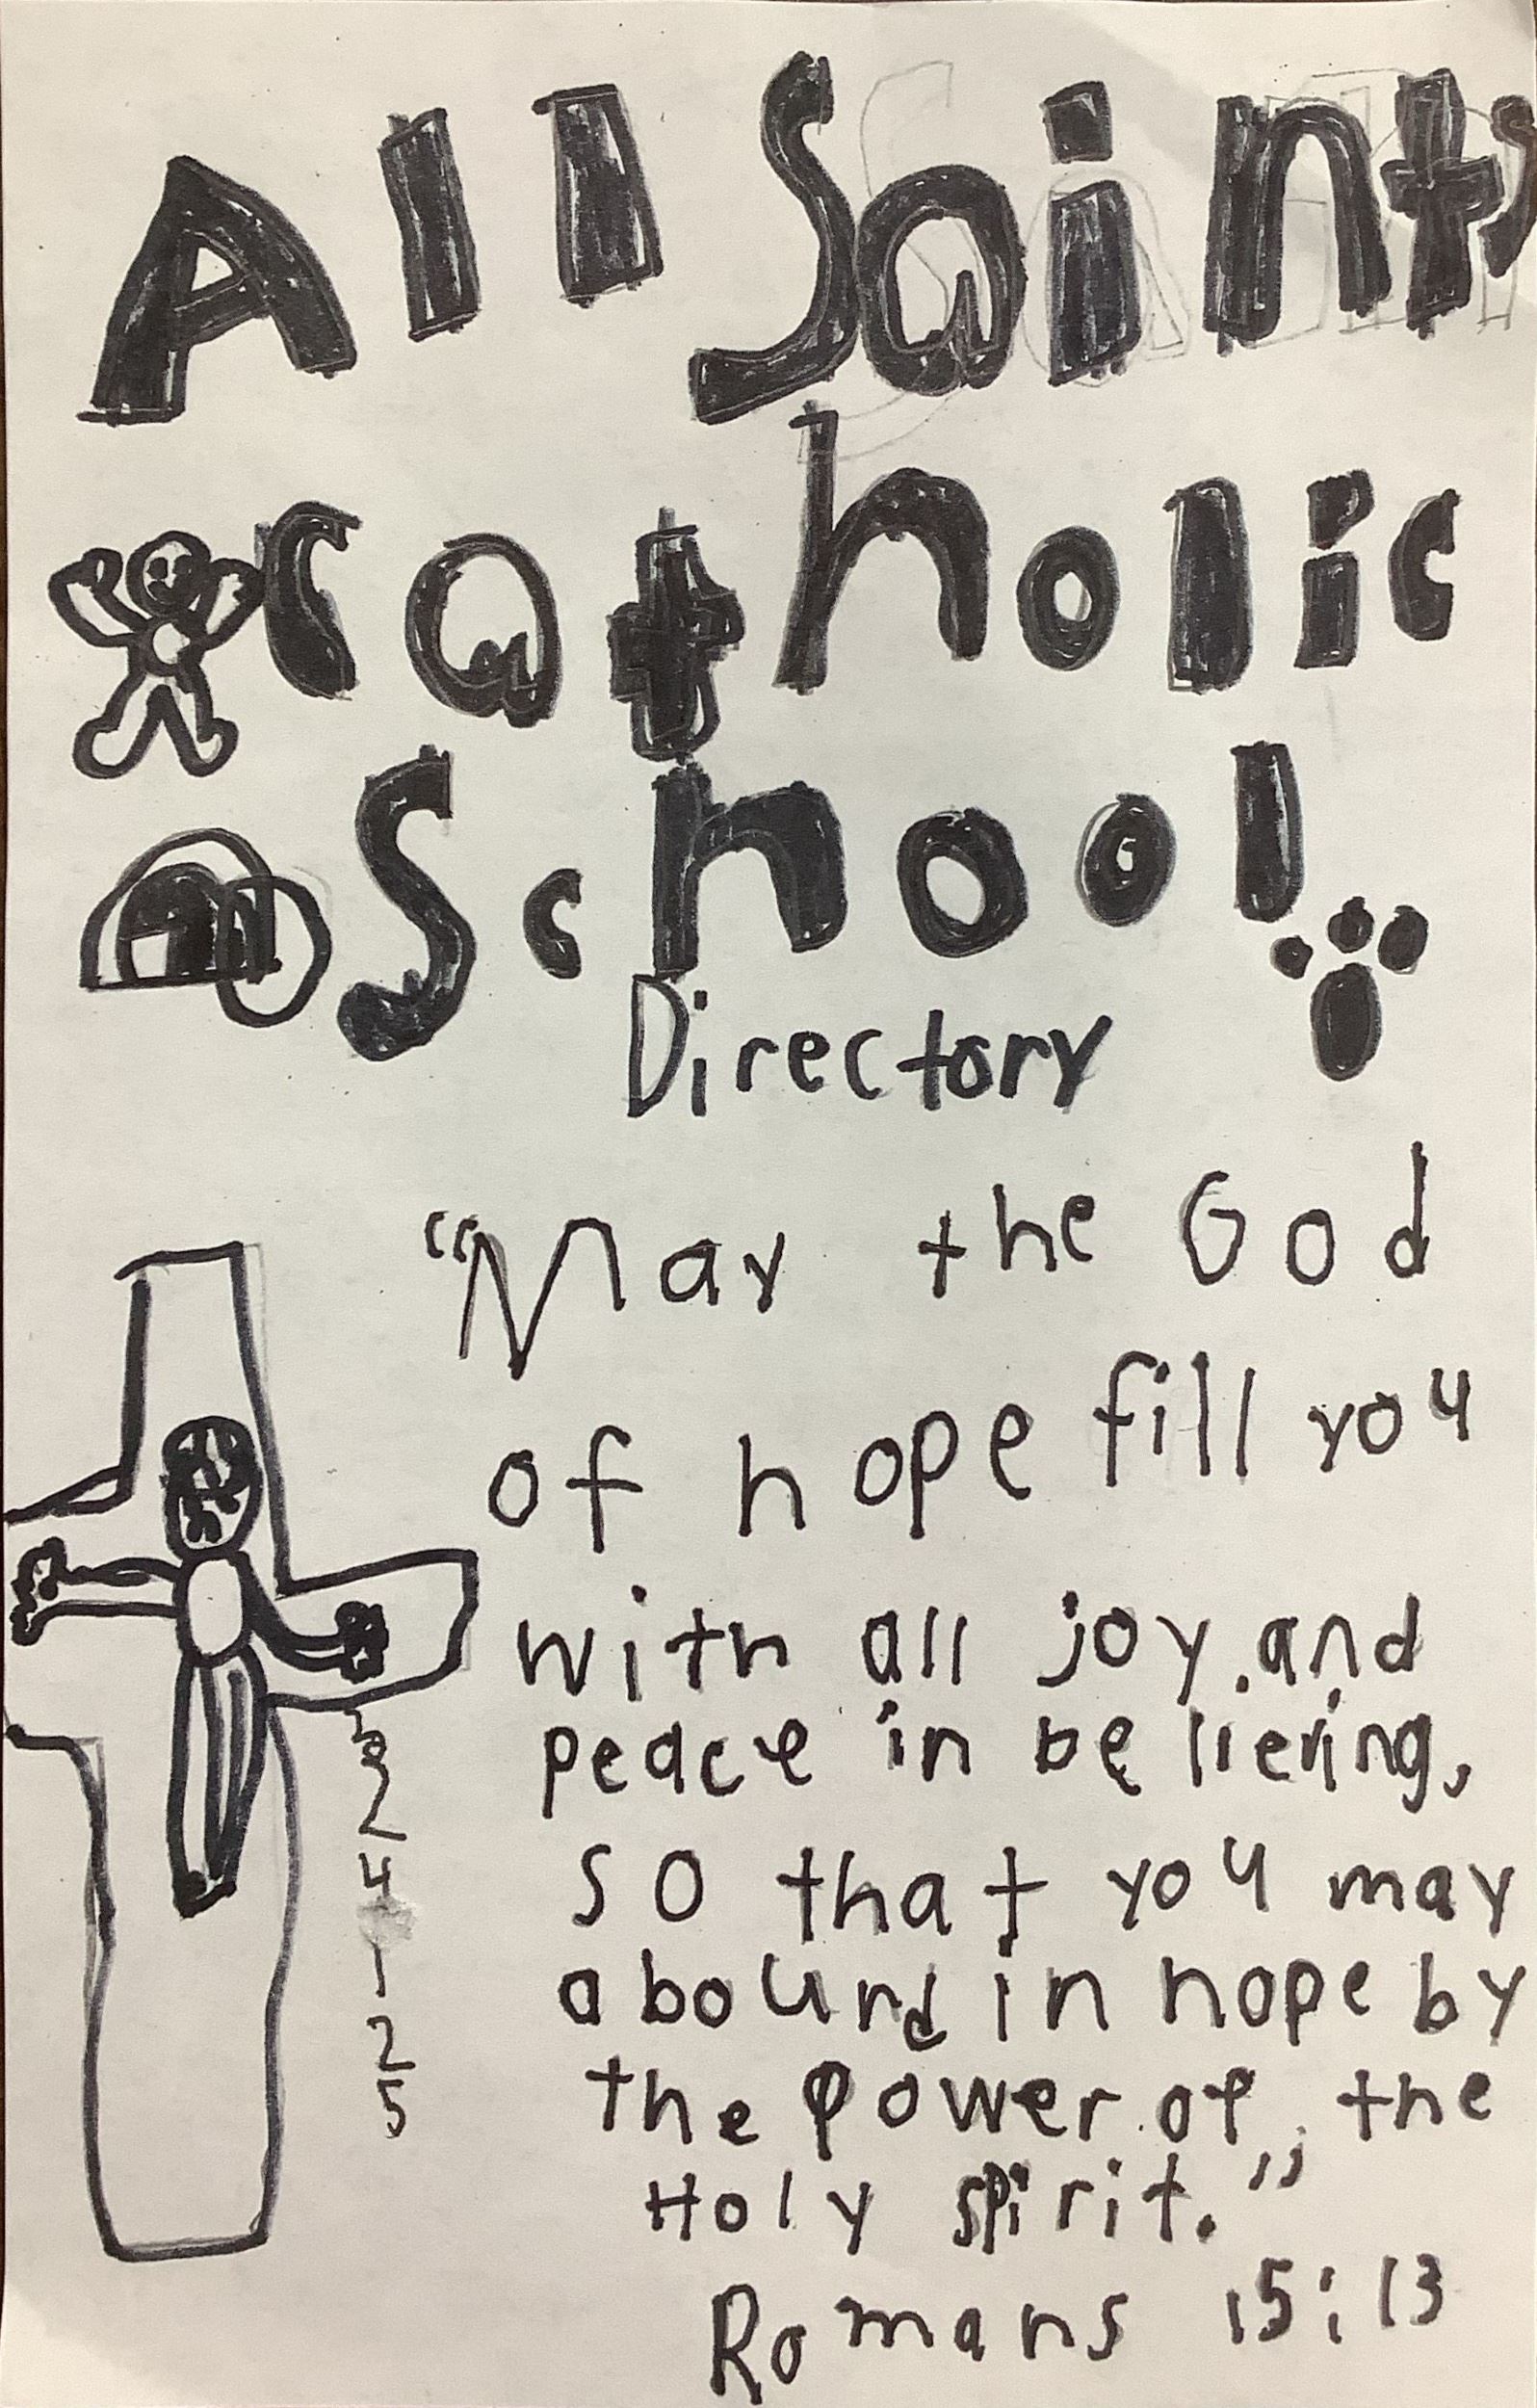 All Saints'
catholic
School
Directory
"May the God
of hope fill you
with all joy and
peace in believing,
so that you may
abound in hope by
the power of the
Holy spirit."
Romans 15:13
2
4
1
2
5